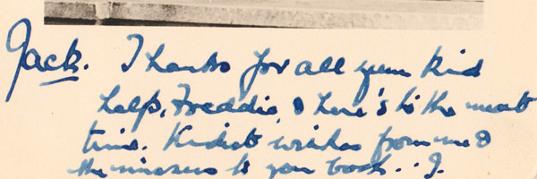 Jack. Thanks for all your kind
help, Freddie, & here's to the next
time. Kindest wishes from me &
the missus to you both. . J.